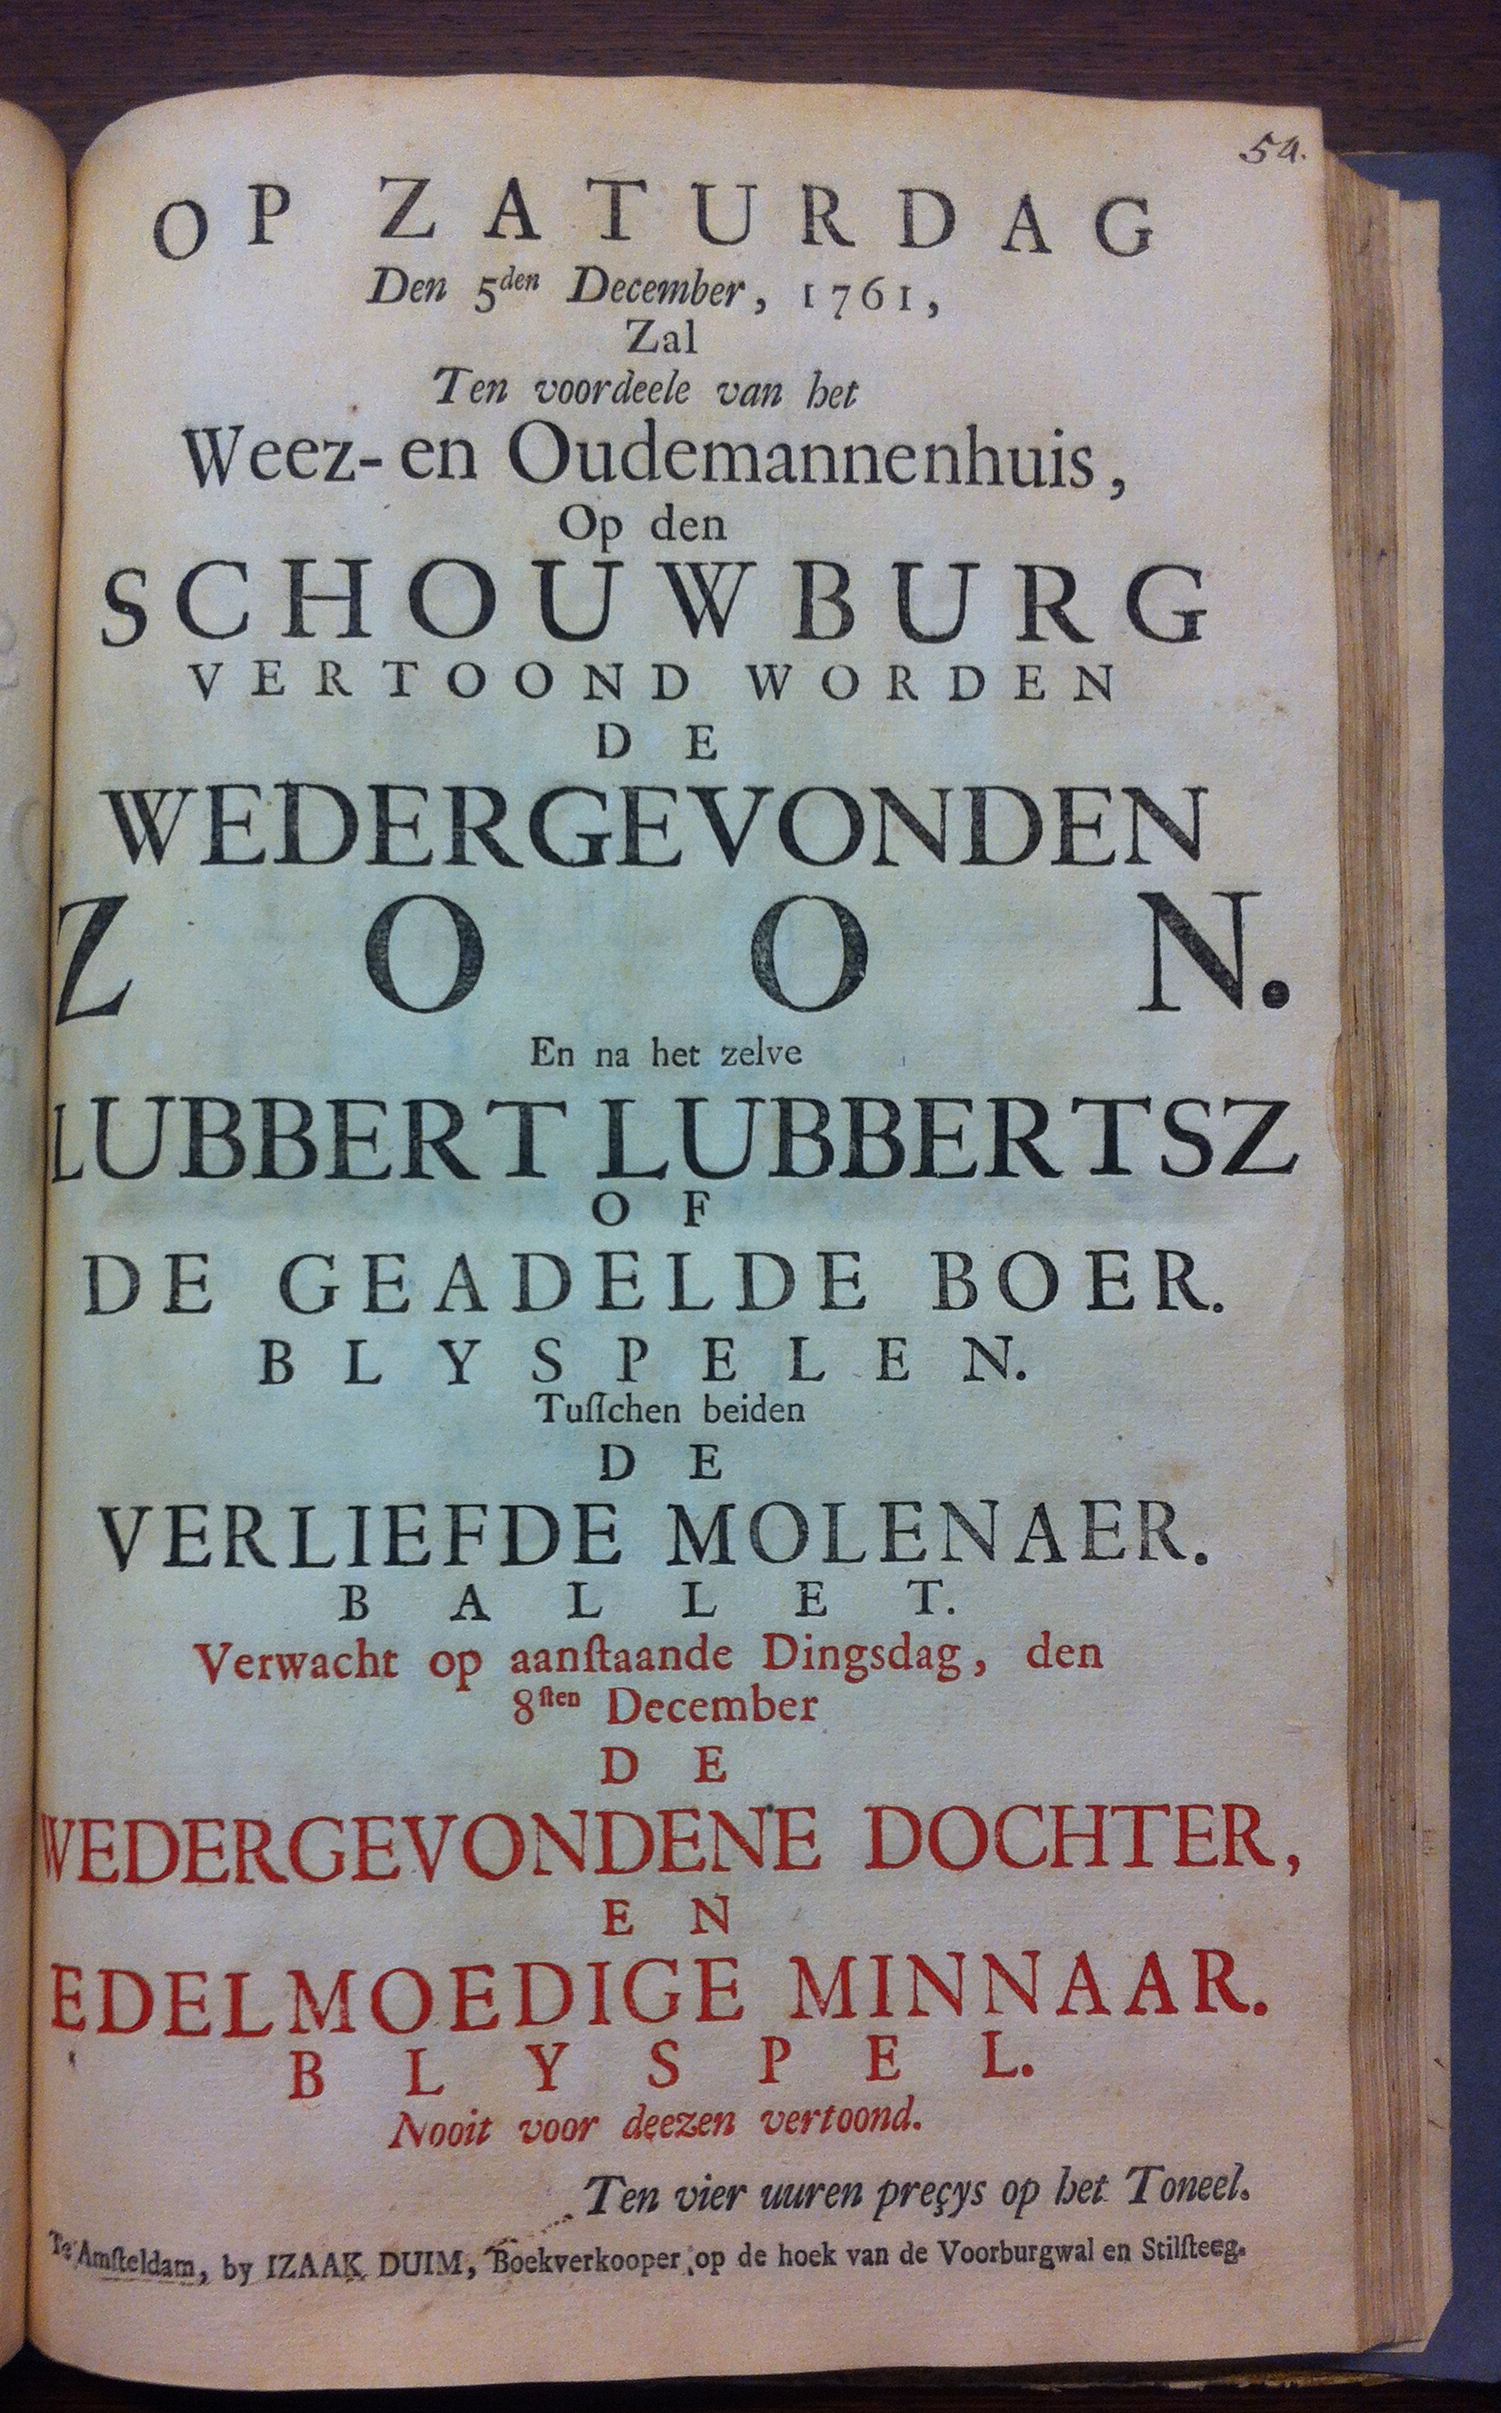 54.
OP ZATURDAG
Den 5den December, 1761,
Zal
Ten voordeele van het
Weez- en Oudemannenhuis,
Op den
SCHOUWBURG
VERTOOND WORDEN
DE
WEDERGEVONDEN
ZOON.
En na het zelve
LUBBERT LUBBERTSZ
OF
DE GEADELDE BOER.
BLYSPELEN.
Tuſſchen beiden
DE
VERLIEFDE MOLENAER.
BALLET.
Verwacht op aanſtaande Dingsdag, den
8ſten December
DE
WEDERGEVONDENE DOCHTER,
EN
EDELMOEDIGE MINNAAR.
BLYSPEL.
Nooit voor deezen vertoond.
Ten vier uuren preçys op het Toneel.
Te Amſteldam, by IZAAK DUIM, Boekverkooper op de hoek van de Voorburgwal en Stilſteeg.